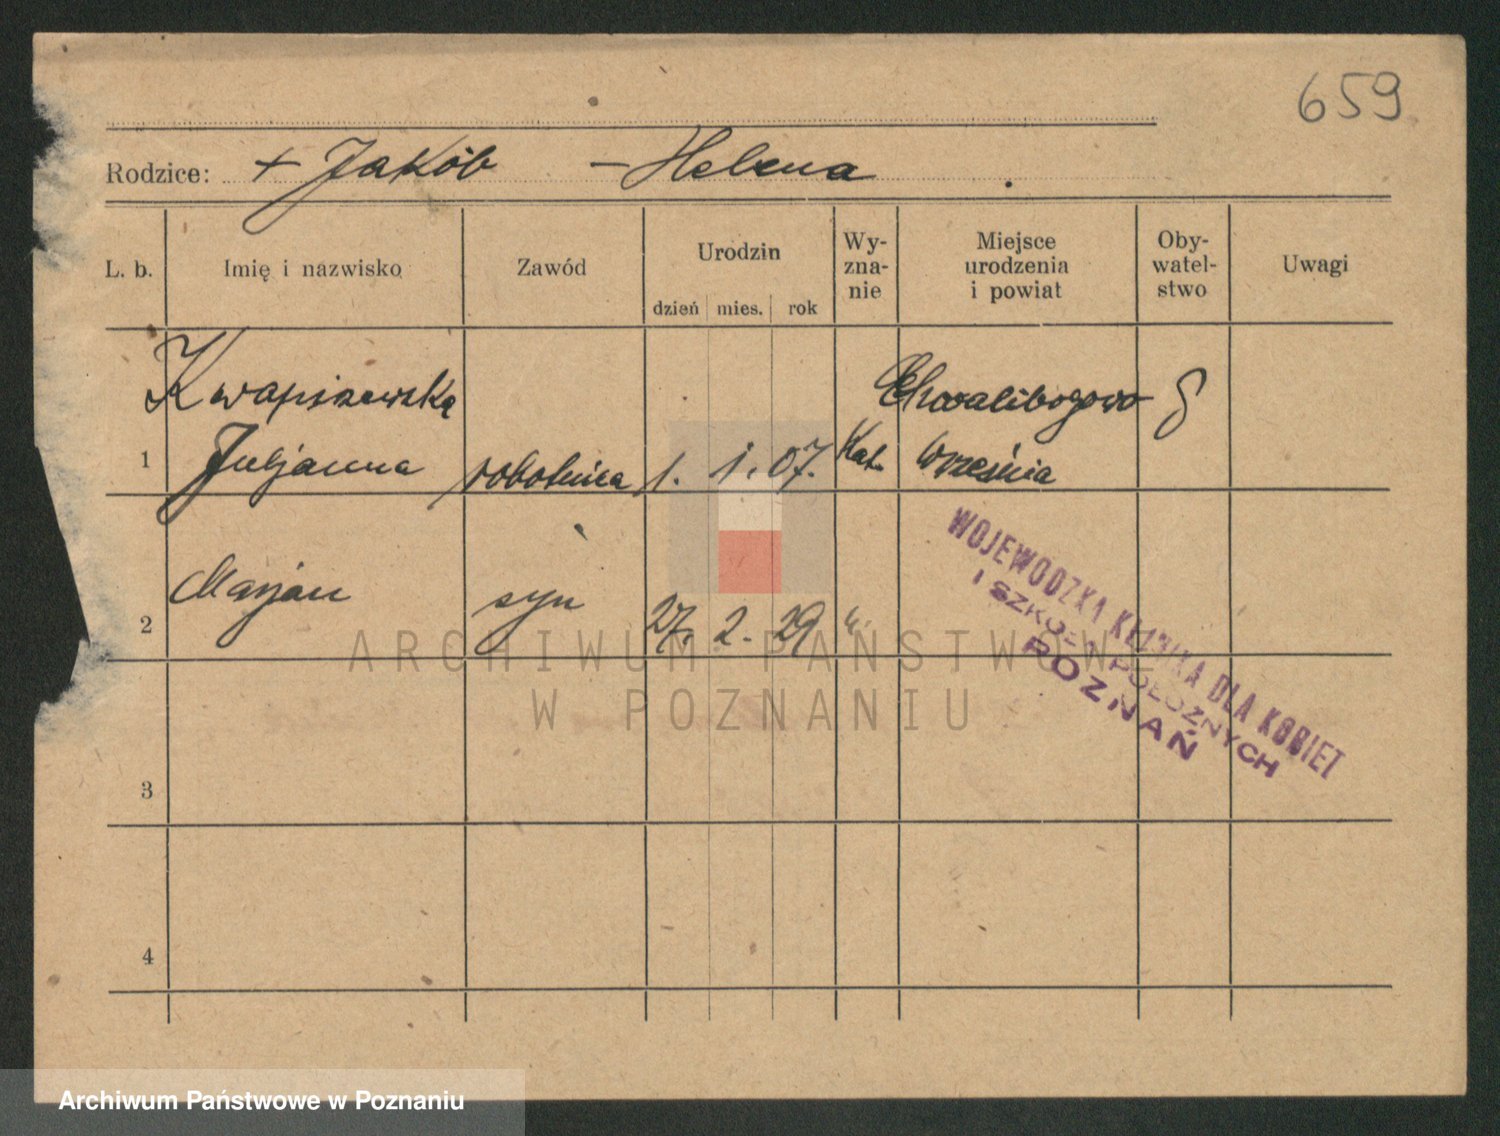 659
Rodzice: + Jakób – Helena
L. b. Imię i nazwisko Zawód Urodzin dzień mies. rok Wy-zna-nie Miejsce urodzenia i powiat Oby-watel-stwo Uwagi
Kwapiszewska Chwalibogowo
1 Juljanna robotnica 1. 1. 07. Kat. Września
2 Marjan syn 27. 2. 29 "
WOJEWÓDZKA KLINIKA DLA KOBIET
I SZKOŁA POŁOŻNYCH
POZNAŃ
ARCHIWUM PAŃSTWOWE
W POZNANIU
3
4
Archiwum Państwowe w Poznaniu